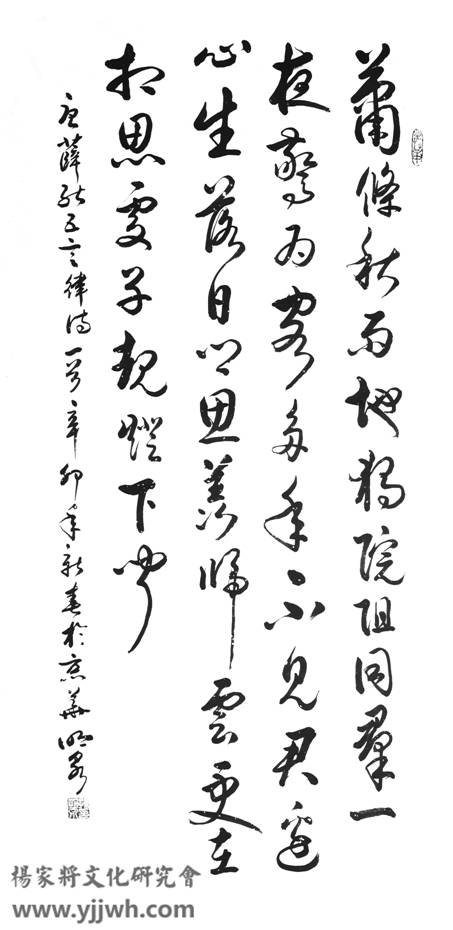 蕭條秋雨地獨院阻同羣一
夜驚為客多年不見君邊
心生落日鄉思羨歸雲更在
相思處子規燈下聞
唐薛能五言律詩一首辛卯年新春於京華
楊家將文化研究會
www.yjjwh.com